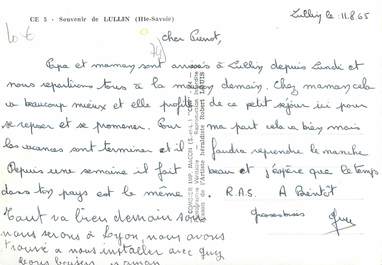 CE 5 - Souvenir de LULLIN (Hte-Savoie)
Lullin le 11.8.65
Cher Pierrot,
Papa et maman sont arrivés à Lullin depuis Lundi et
nous repartons tous à la maison demain. Chez maman cela
va beaucoup mieux et elle profite de ce petit séjour ici pour
se reposer et se promener. Pour ma part cela va bien mais
les vacances sont terminer et il faudra reprendre le manche
Depuis une semaine il fait beau et j'espère que le temps
dans ton pays est le même. R.A.S. A Bientôt
Grosses bises
Guy
Tout va bien demain soir
nous serons à Lyon, nous avons
trouvé a nous installer avec Guy
maman
COMBIER IMP. MACON